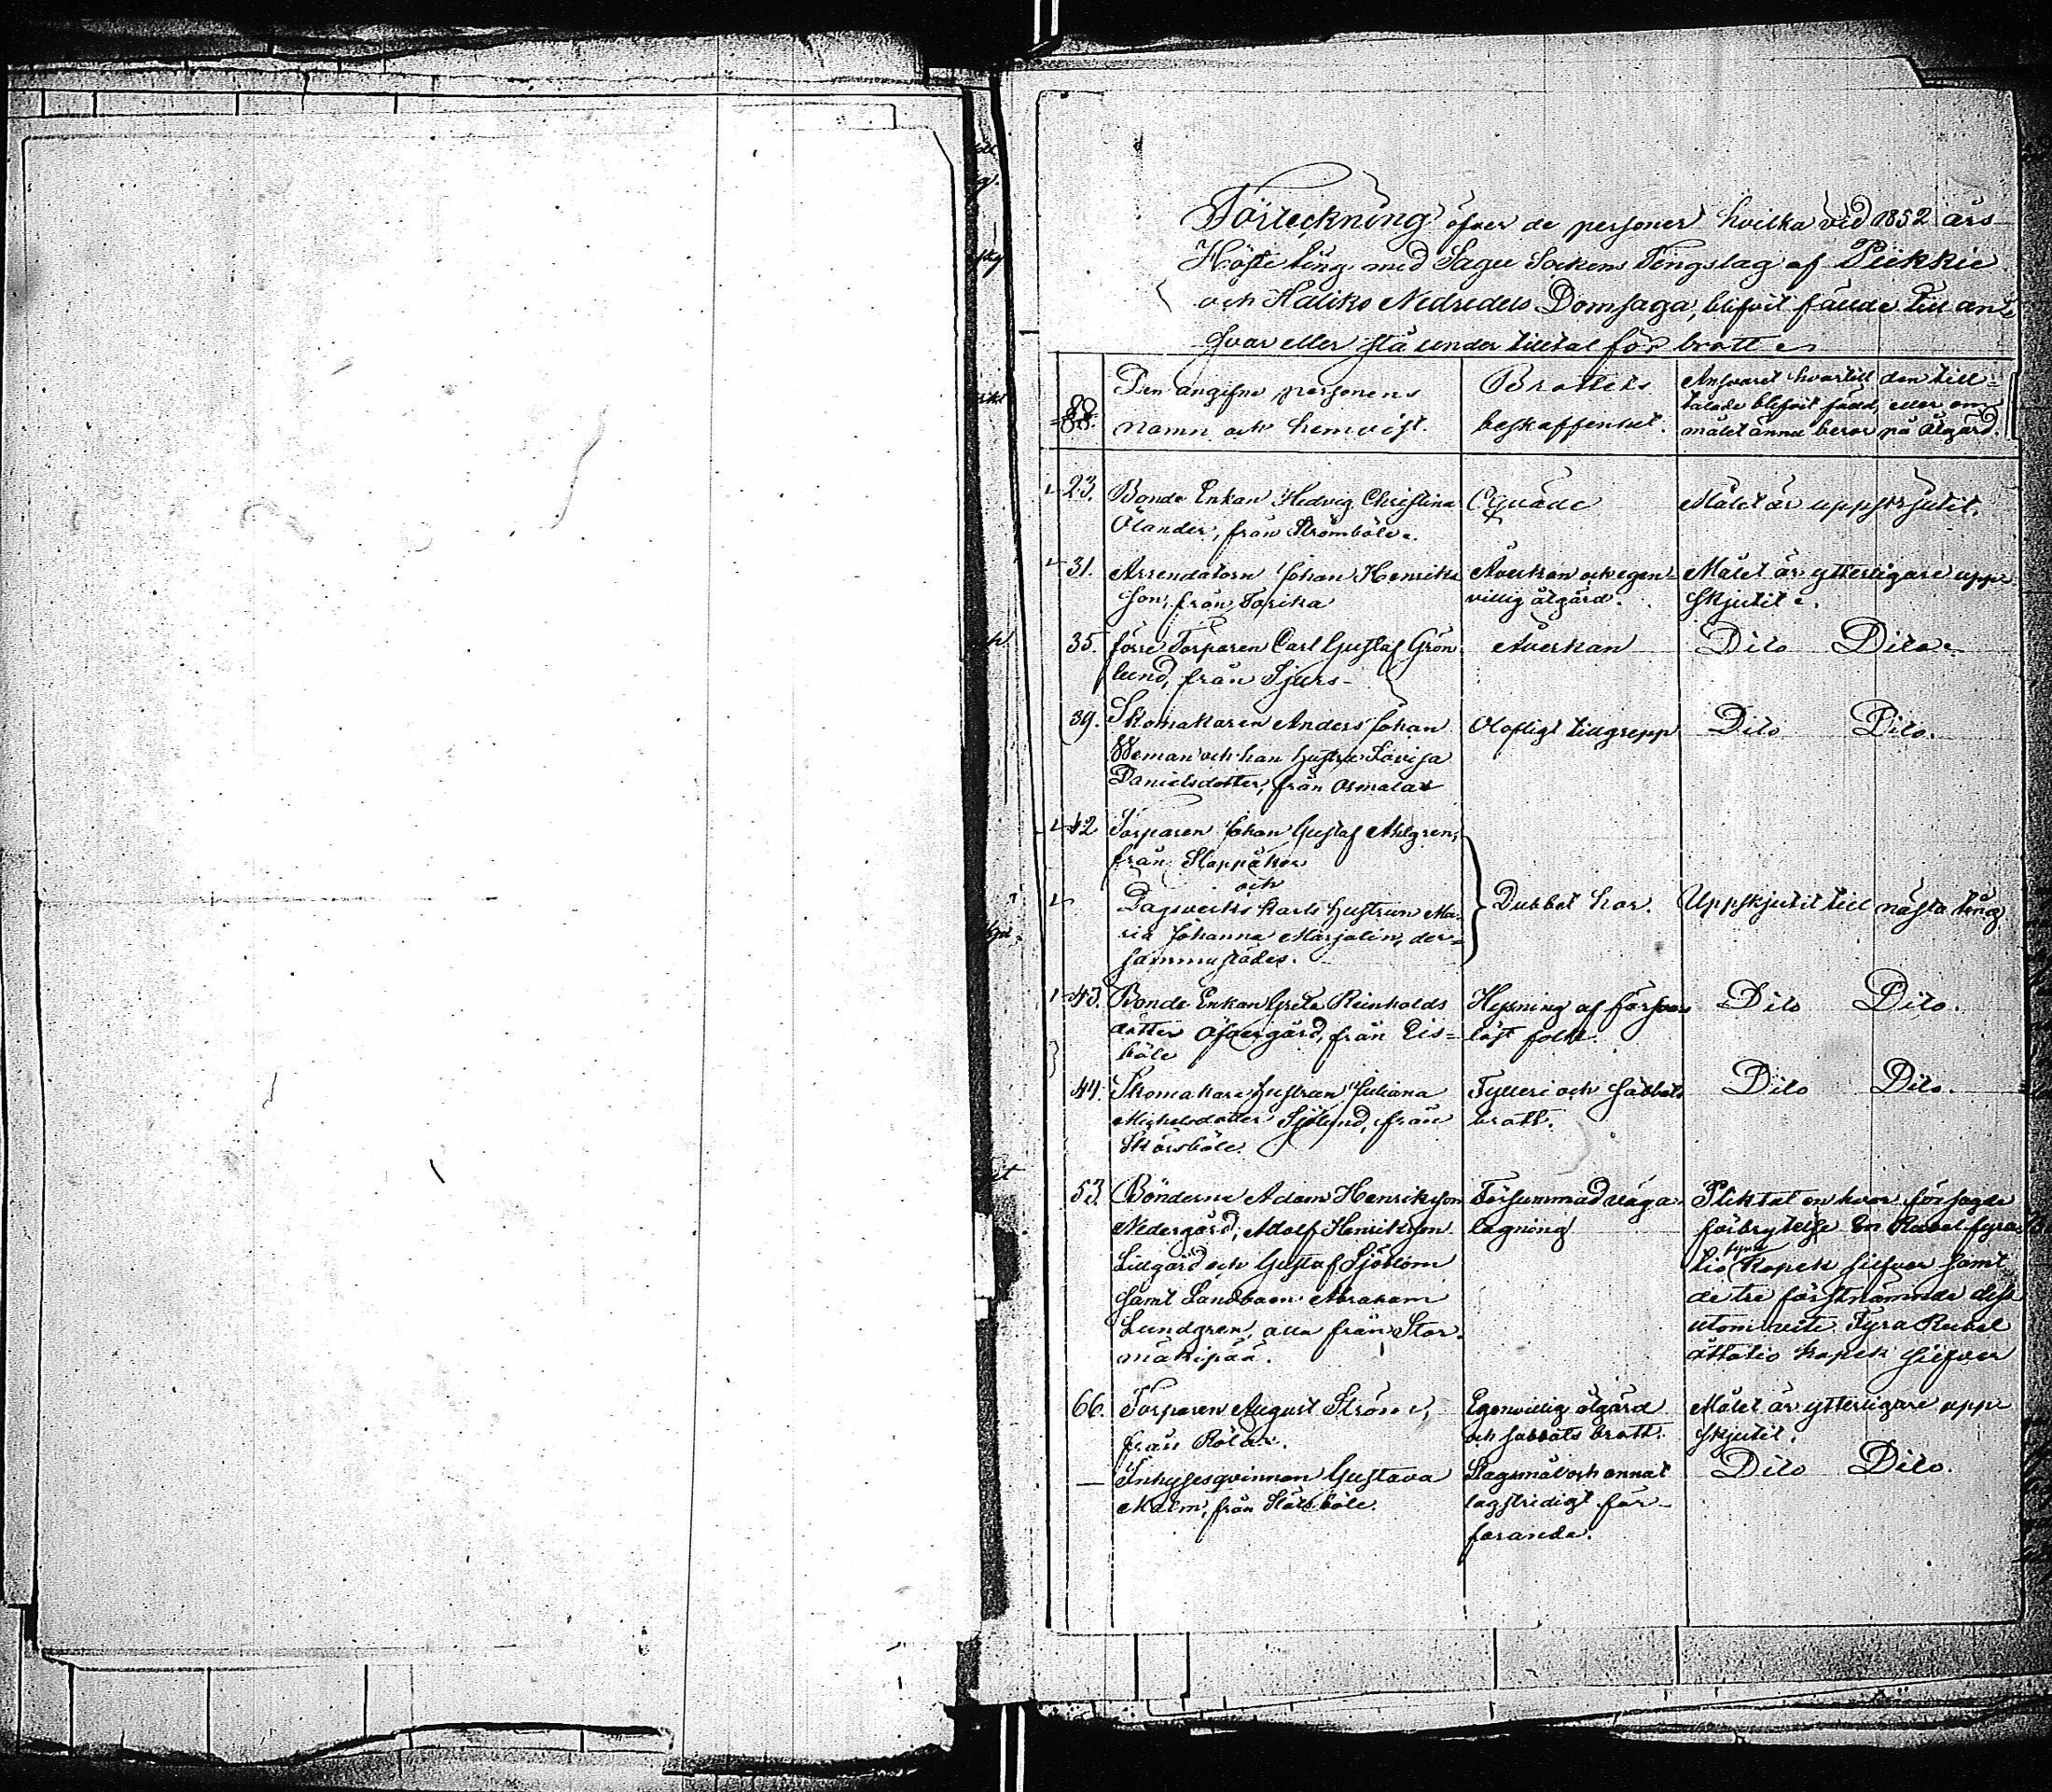 Förteckning öfver de personer hvilka vid 1852 års
Höste ting med Sagu Sockens Tingslag af Piikkie
och Haliko Nedredels Domsaga, blifvit fällde till an-
svar eller stå under tilltal för brott
§§.
Den angifne personens
namn och hemvist.
Brottets
beskaffenhet.
Ansvaret hvartill den till-
talade blifvit fälld, eller om
målet ännu beror på åtgärd.
23. Bonde Enkan Hedvig Christina
Ölander, från Strömböle.
Oqväde
Målet är uppskjutit.
31. Arrendatorn Johan Henriks
son, från Torika
Åverkan och egen-
villig åtgärd.
Målet är ytterligare upp-
skjutit.
35. förre Torparen Carl Gustaf Grön-
lund, från Sjurs-
Åverkan
Dito Dito.
39. Skomakaren Anders Johan
Weman och han hustru Lovisa
Danielsdotter, från Osmalax
Olofligt tillgrepp
Dito Dito.
42 Torparen Johan Gustaf Ahlgren,
från Sloppåker
och
Dagsverks Karls hustrun Ma-
ria Johanna Marjelin, der-
sammastädes.
Dubbet hor.
Uppskjutit till nästa ting
43. Bonde Enkan Greta Reinholds
dotter Öfvergård, från Lis-
böle
Hysning af försvars
löst folk.
Dito Dito.
44. Skomakare hustrun Juliana
Michelsdotter Sjölund, från
Skärsböle.
Fylleri och sabbats
brott.
Dito Dito.
53. Bönderne Adam Henriksson
Nedergård, Adolf Henriksson
Lillgård och Gustaf Sjöblom
samt Landboen Abraham
Lundgren, alla från Stor-
mäkipää.
Försummad väga-
lagning
Pliktat en hvar för sagde
förbrytelse En Rubel fyra
tio fyra Kopek silfver samt
de tre förstnämnde dess
utom vite Fyra Rubel
åttatio kopek silfver
66. Torparen August Ström,
från Rölax.
Egenvillig åtgärd
och sabbats brott.
Målet är ytterligare upp-
skjutit.
— Inhysesqvinnan Gustava
Malm, från Slätsböle.
Slagsmål och annat
lagstridigt för-
farande.
Dito Dito.